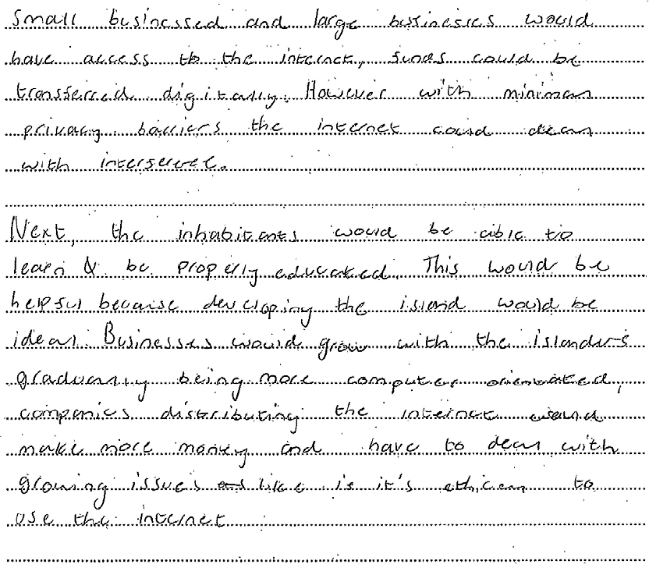 Small businessed and large businesses would
have access to the internet, funds could be
transferred digitally. However with minimal
privacy barriers the internet could deal
with
Next, the inhabitants would be able to
learn & be properly educated. This would be
helpful because developing the island would be
ideal. Businesses would grow with the islanders
gradually being more computer orientated,
companies distributing the internet would
make more money and have to deal with
growing issues as like is it's ethical to
use the internet